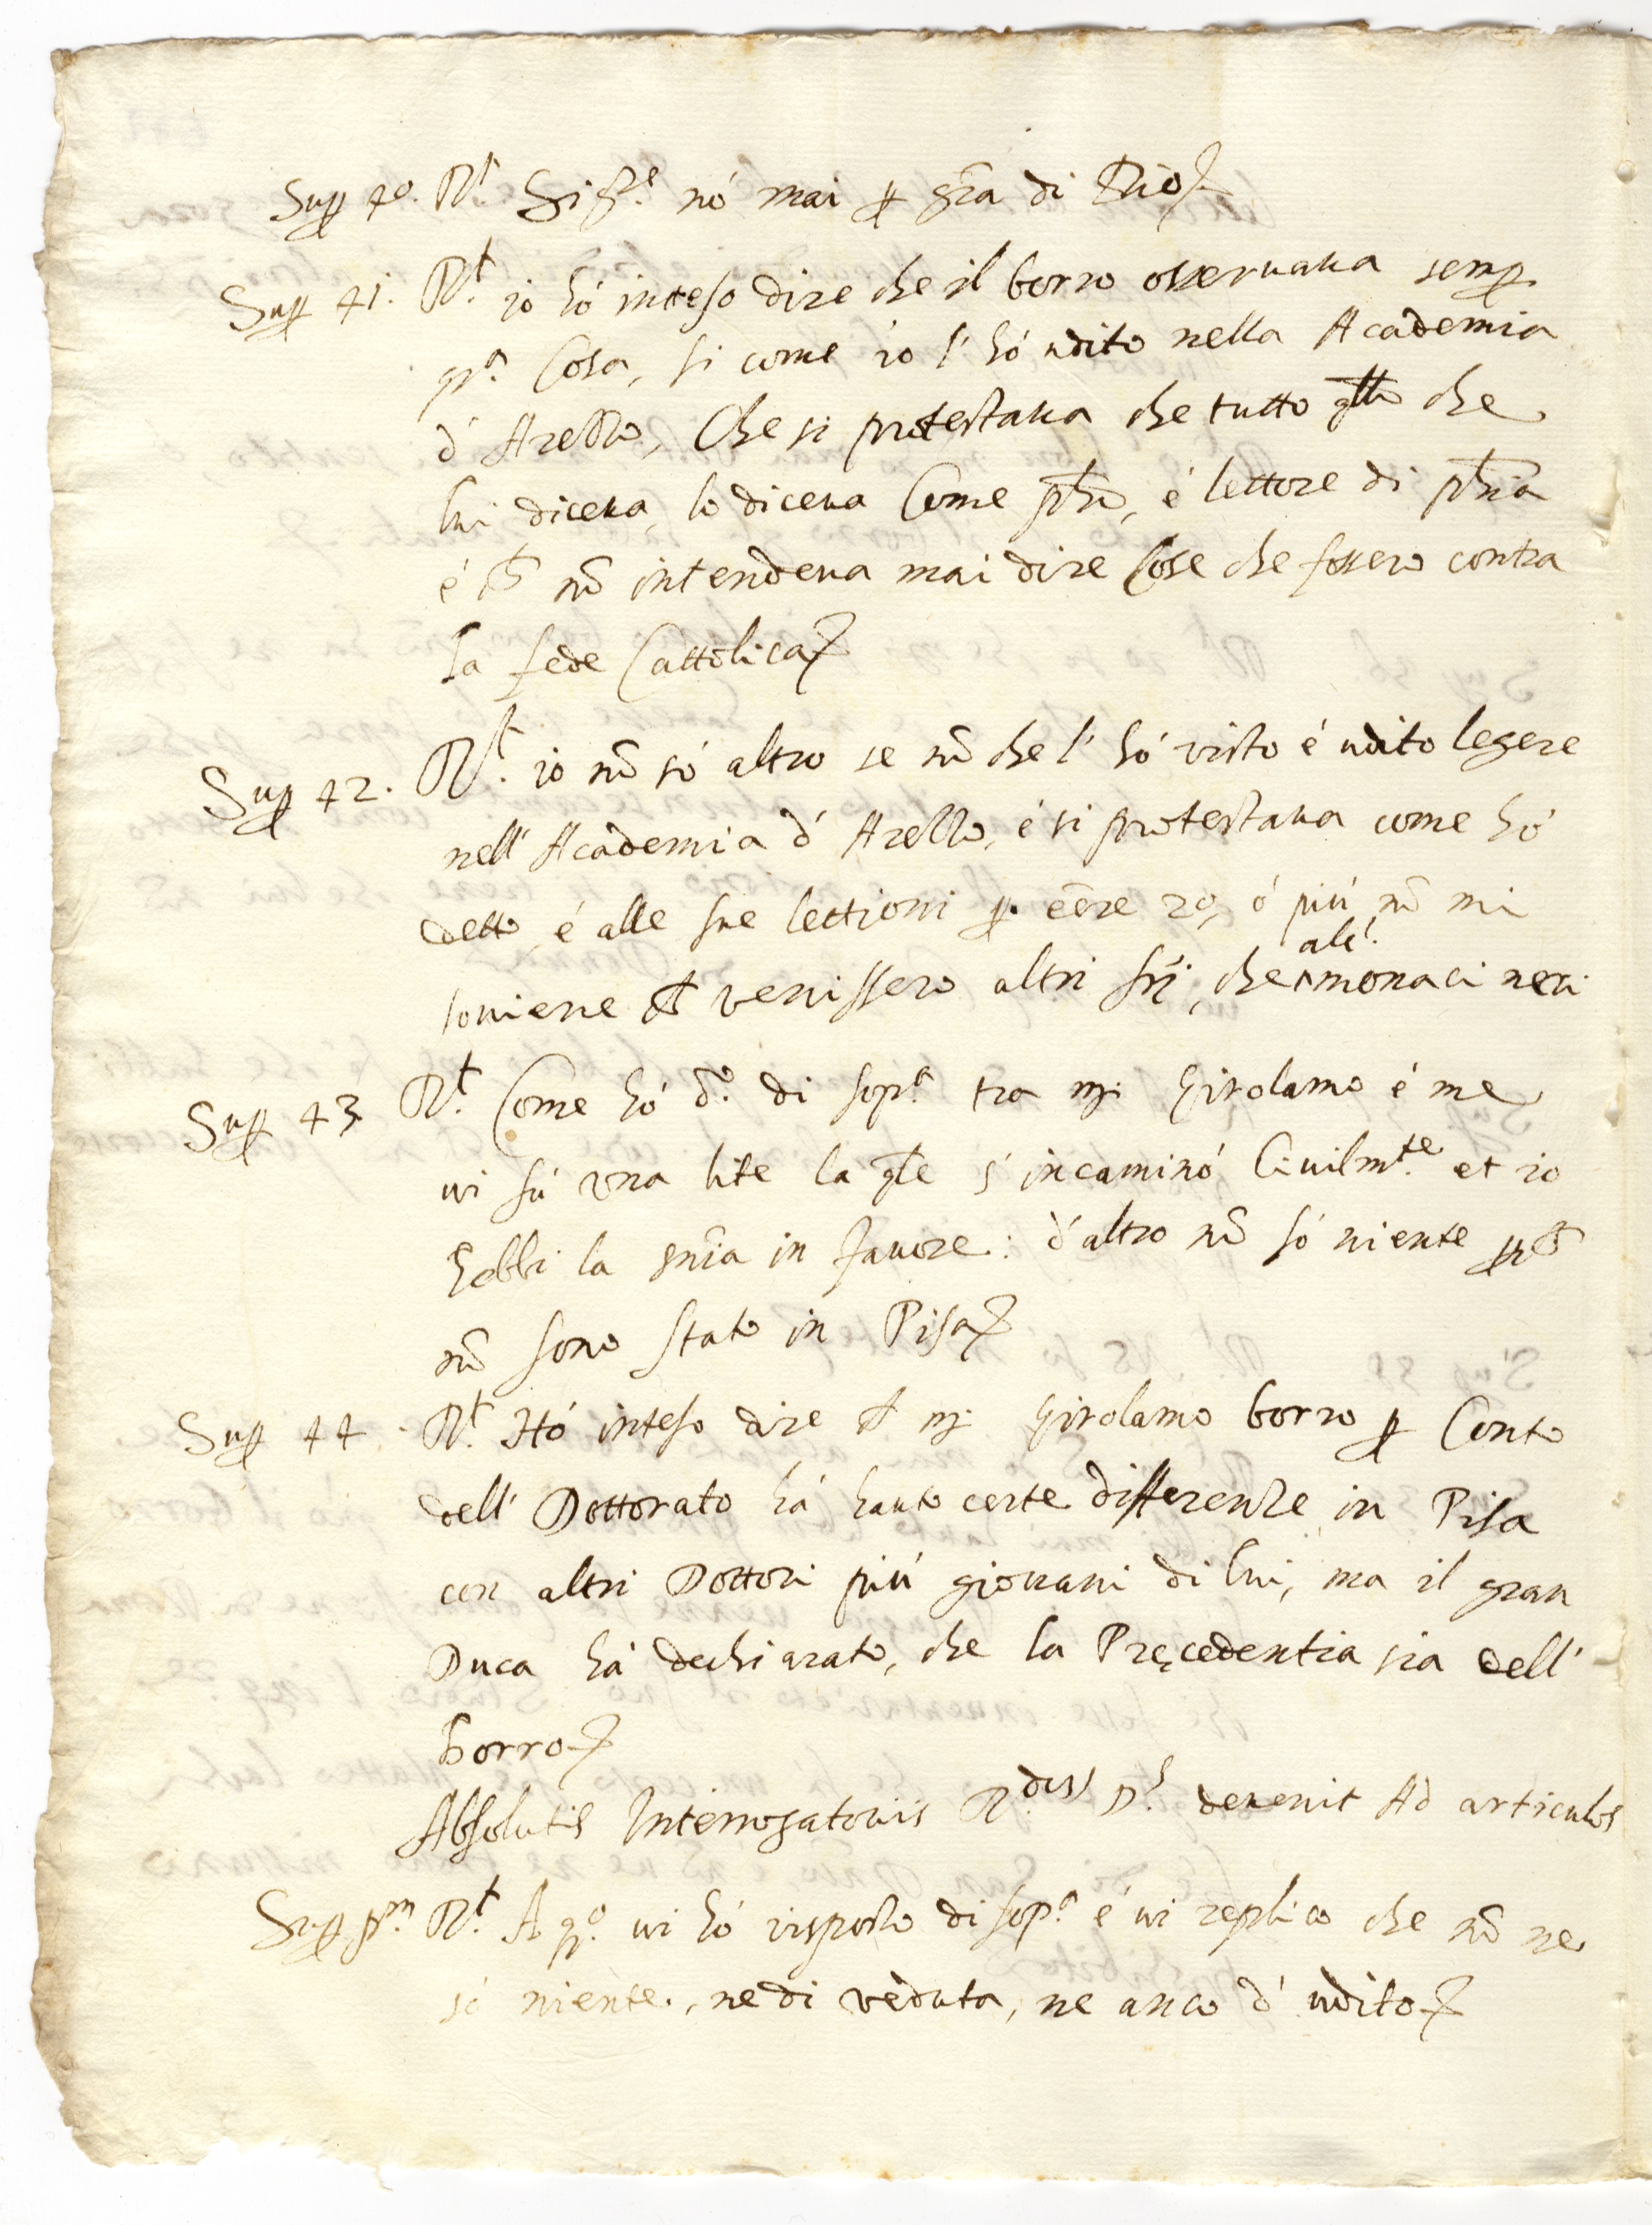 Sup 40. Rt Sigre nó mai p gr̃a di Dio
Sup 41. Rt io hó inteso dire che il borro osseruaua semp
qa Cosa, si come io l' hó udito nella Academia
d' Arezzo, Che si protestaua che tutto qllo che
lui diceua, lo diceua Come pho, é lettore di phia
é nō intendeua mai dire Cose che fossero contra
la fede Cattolica
Sup 42. Rt io nō só altro se nō che l' hó visto é udito legere
nell' Academia d' Arezzo, é si protestaua come hó
detto é alle sue lettioni p eēre 20, ó piú nō mi
souiene ch venissero altri fr̃i, che alc. monaci neri
Sup 43 Rt Come hó do di sopa tra mr Girolamo é me
ui fú una lite la qle s' incaminó Ciuilmte et io
hebbi la sñia in fauore: d'altro nō só niente pch
nō sono stato in Pisa
Sup 44 Rt Hó inteso dire ch mr Girolamo borro p Conto
dell' Dottorato há hauto certe differenze in Pisa
con altri Dottori piú giouani di lui, ma il gran
Duca há dechiarato, che la Pręcedentia sia dell'
Borro
Absolutis Interrogatoriis R.dus Ds deuenit Ad articulos
Sup pm Rt A qo ui hó risposto di sopa é ui replico che nō ne
só niente, ne di veduta, ne anco d' udito